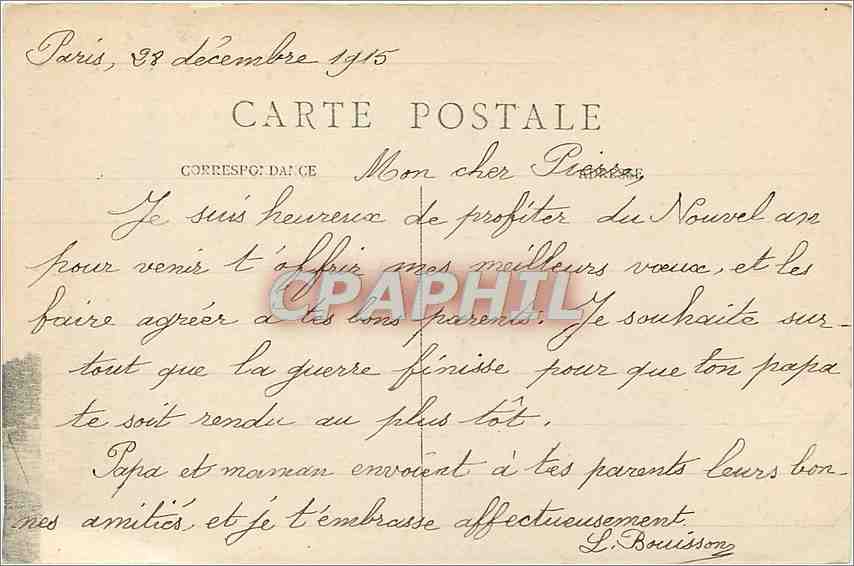 Paris, 28 décembre 1915
CARTE POSTALE
CORRESPONDANCE Mon cher Pierre, ADRESSE
Je suis heureux de profiter du Nouvel an
pour venir t'offrir mes meilleurs vœux, et les
CPAPHIL
faire agréer à tes bons parents. Je souhaite sur-
tout que la guerre finisse pour que ton papa
te soit rendu au plus tôt.
Papa et maman envoient à tes parents leurs bon-
nes amitiés, et je t'embrasse affectueusement
L. Bouisson